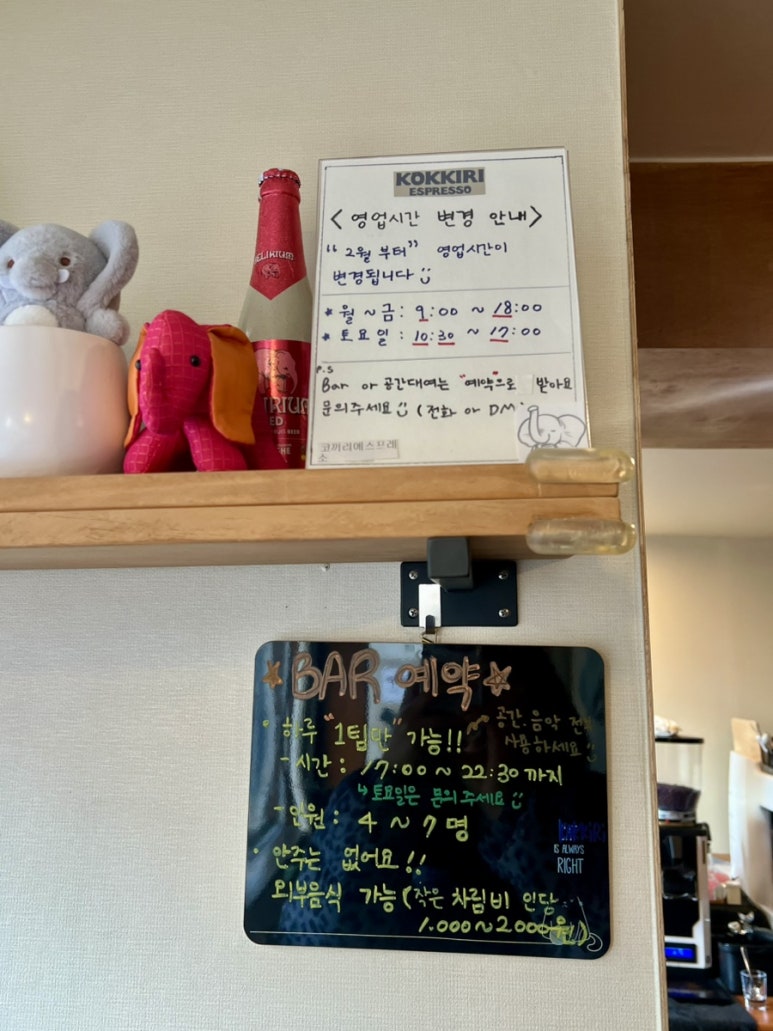 KOKKIRI
ESPRESSO
< 영업시간 변경 안내 >
"2월 부터" 영업시간이
변경됩니다
* 월 ~ 금 : 9:00 ~ 18:00
* 토요일 : 10:30 ~ 17:00
P.S
Bar or 공간대여는 "예약"으로 받아요
문의주세요 (전화 or DM)
코끼리에스프레
소
DELIRIUM
RED
BAR 예약
하루 "1팀만" 가능!!
공간, 음악
사용하세요
- 시간 : 17:00 ~ 22:30 까지
↳ 토요일은 문의주세요
- 인원 : 4 ~ 7 명
IS ALWAYS
RIGHT
• 안주는 없어요!!
외부음식 가능 (작은 차림비 인당
1.000~2000원)